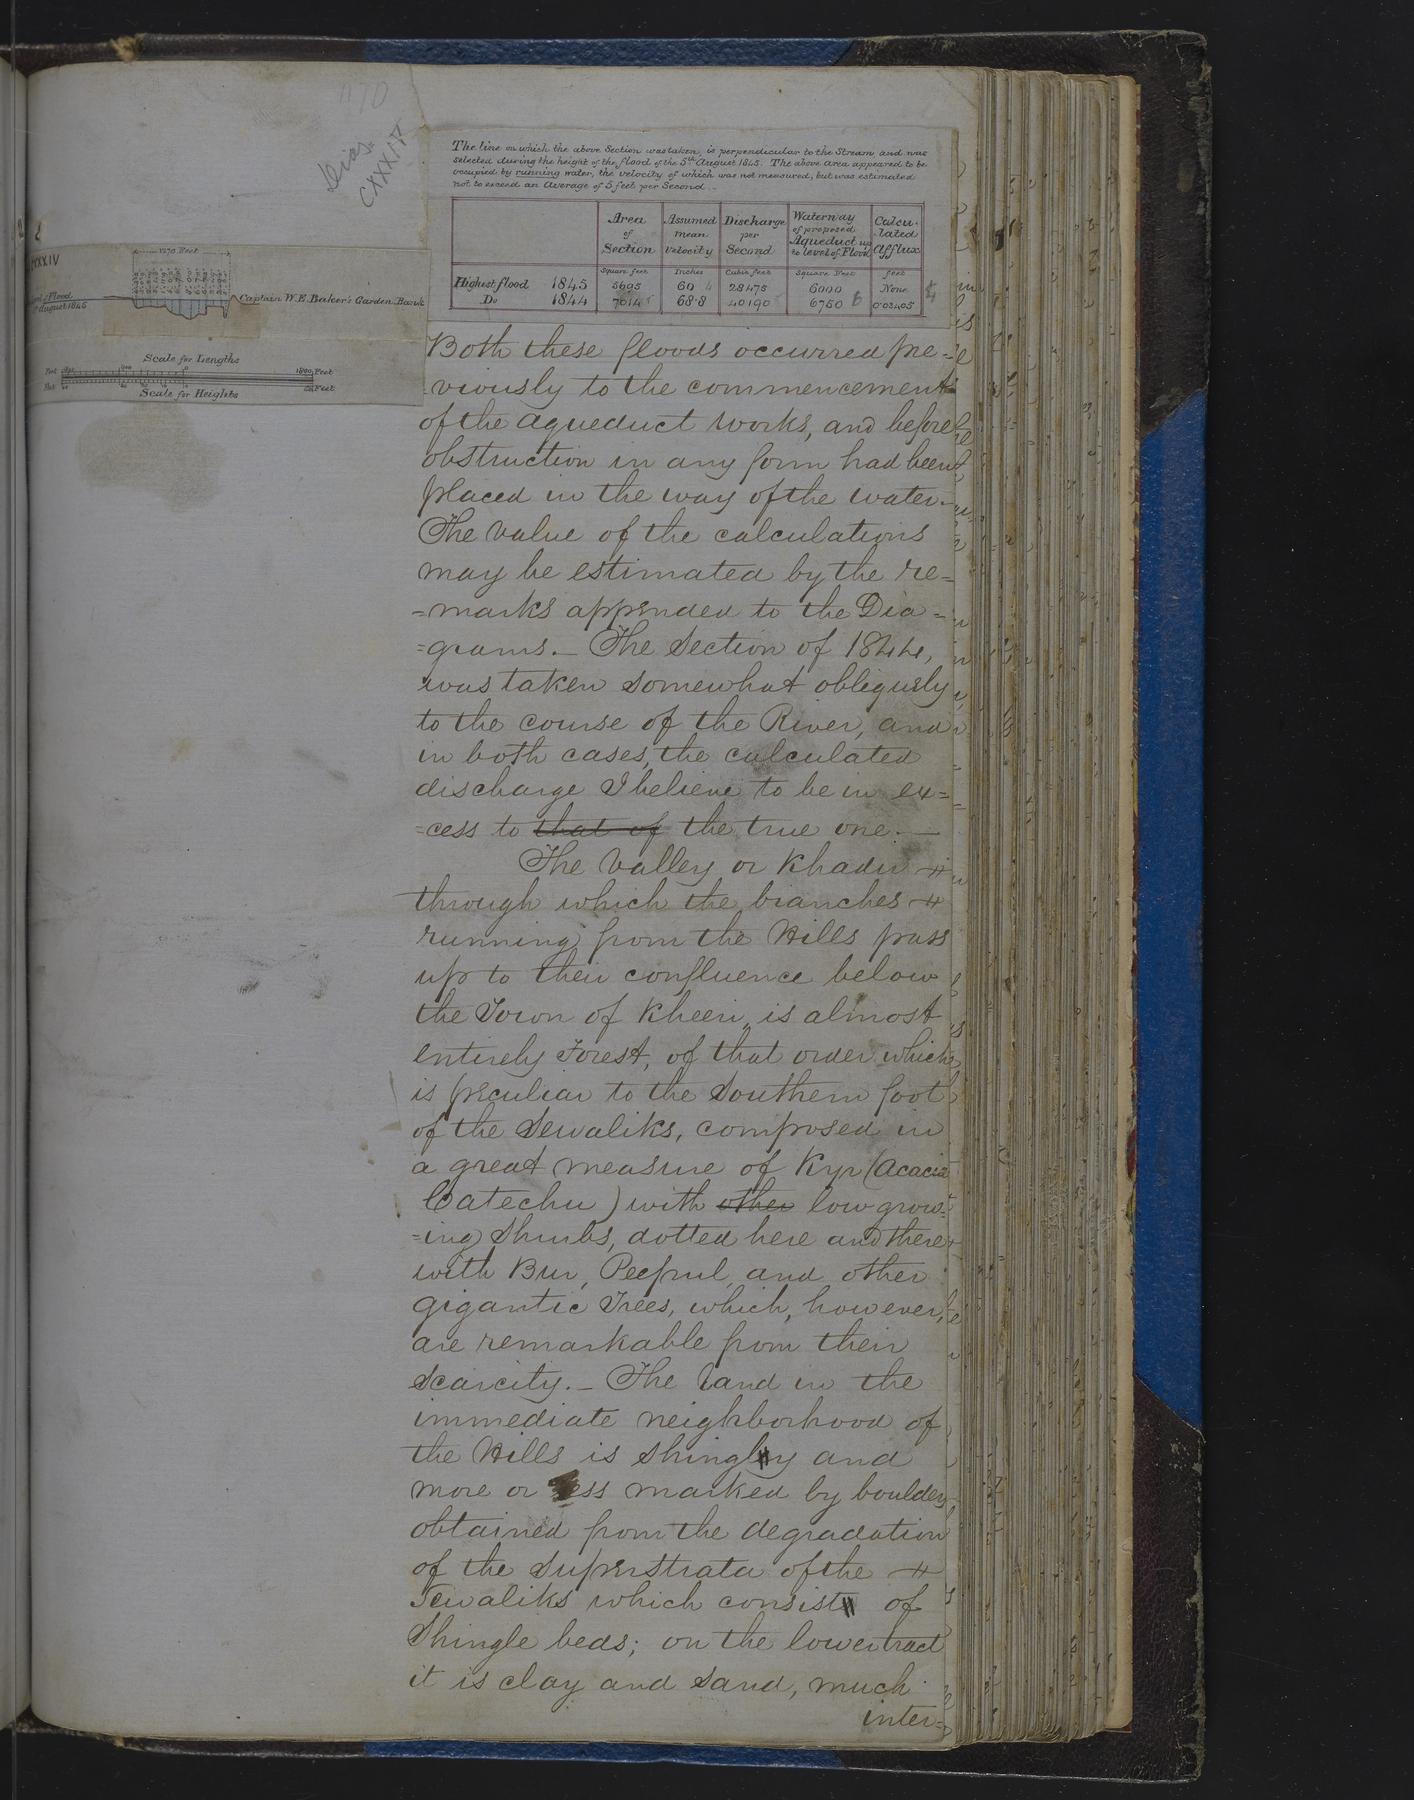 1170
Diag.
CXXXIV
CXXXIV
1270 Feet
Captain W. E. Baker's Garden Bank
of Flood
August 1845
Scale for Lengths
1800 Feet
Feet
Scale for Heights
The line on which the above Section was taken, is perpendicular to the Stream and was
selected during the height of the flood of the 5th August 1845. The above Area appeared to be
occupied by running water, the velocity of which was not measured, but was estimated
not to exceed an Average of 5 feet per Second.
Area of Section Assumed mean Velocity Discharge per Second Waterway of proposed Aqueduct up to level of Flood Calcu-lated Afflux
Square feet Inches Cubic feet Square Feet feet
Highest flood 1845 5695 60 28475 6000 None
Do 1844 7014 68·8 40190 6750 0·03405
Both these floods occurred pre-
viously to the commencement
of the Aqueduct Works, and before
obstruction in any form had been
placed in the way of the water.
The Value of the calculations
may be estimated by the re-
=marks appended to the Dia=
=grams._ The Section of 1844,
was taken somewhat obliquely
to the course of the River, and
in both cases, the calculated
discharge I believe to be in ex=
=cess to that of the true one._
The Valley or Khadir
through which the branches
running from the Hills pass
up to their confluence below
the Town of Kheri, is almost
entirely Forest, of that order which
is peculiar to the Southern foot
of the Sewaliks, composed in
a great measure of Kyr (Acacia
Catechu) with other low grow=
=ing Shrubs, dotted here and there
with Bur, Peepul, and other
gigantic Trees, which, however,
are remarkable from their
scarcity._ The land in the
immediate neighborhood of
the Hills is shingly and
more or less marked by boulders
obtained from the degradation
of the Superstrata of the
Sewaliks which consist of
Shingle beds; on the lower tract
it is clay and sand, much
inter=